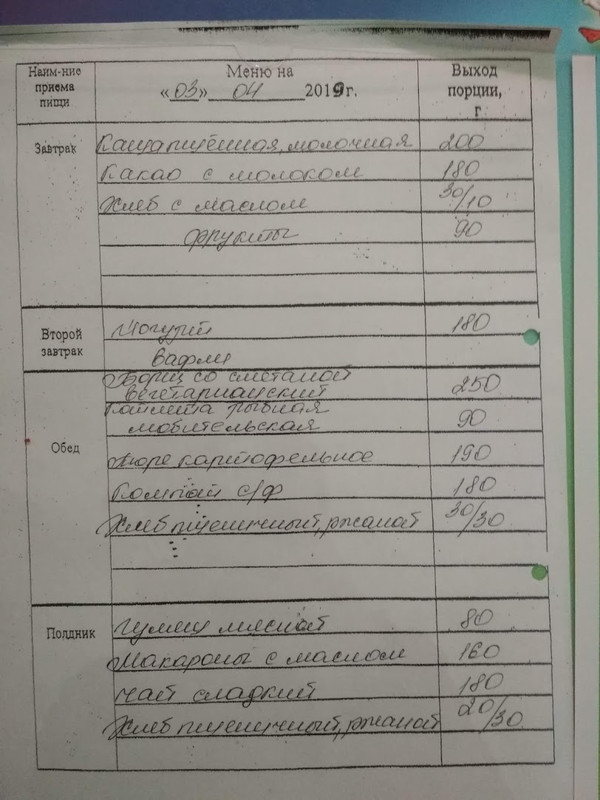 Наим-ние приема пищи
Меню на
«03» 04 2019г.
Выход порции, г
Завтрак
Каша пшённая, молочная 200
Какао с молоком 180
Хлеб с маслом 30/10
фрукты 90
Второй завтрак
Йогурт 180
вафли
Обед
Борщ со сметаной
вегетарианский 250
Котлета рыбная
любительская 90
Пюре картофельное 190
Компот с/ф 180
Хлеб пшеничный, ржаной 30/30
Полдник
Гуляш мясной 80
Макароны с маслом 160
Чай сладкий 180
Хлеб пшеничный, ржаной 20/30